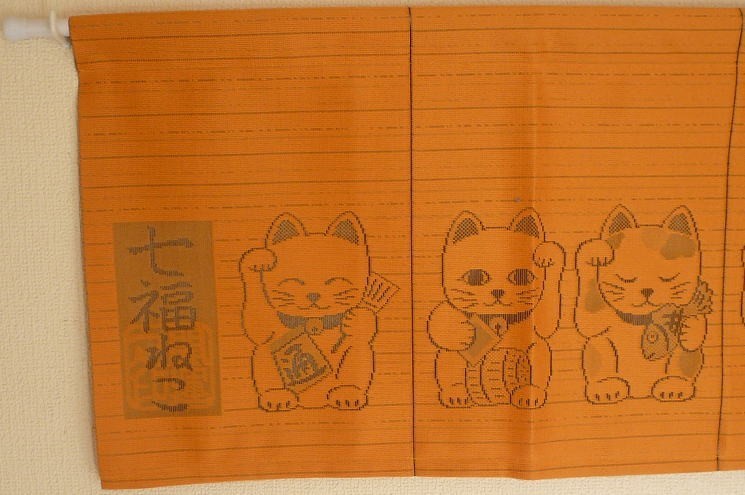 七福ねこ
通